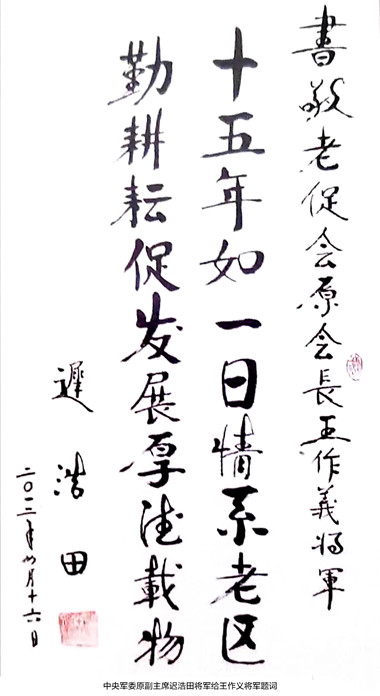 書敬老促会原会長王作義将軍
十五年如一日情系老区
勤耕耘促发展厚德載物
遲浩田
二〇一三年四月十六日
中央军委原副主席迟浩田将军给王作义将军题词